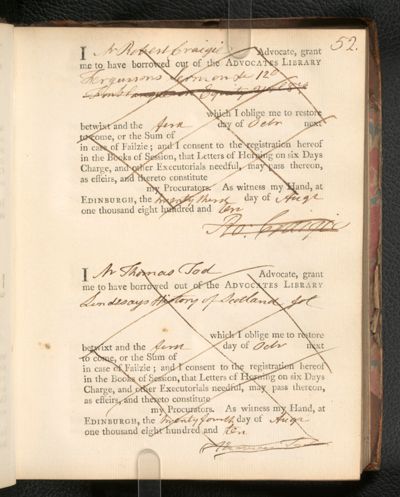 52.
I Mr Robert Craigie Advocate, grant
me to have borrowed out of the ADVOCATES LIBRARY
Fergusons Sermons 12o
which I oblige me to restore
betwixt and the first day of Octr next
to come, or the Sum of
in case of Failzie; and I consent to the registration hereof
in the Books of Session, that Letters of Horning on six Days
Charge, and other Executorials needful, may pass thereon,
as effeirs, and thereto constitute
my Procurators. As witness my Hand, at
EDINBURGH, the twenty third day of Augt
one thousand eight hundred and ten
Ro. Craigie
I Mr Thomas Tod Advocate, grant
me to have borrowed out of the ADVOCATES LIBRARY
Lindsays History of Scotland fol
which I oblige me to restore
betwixt and the first day of Octr next
to come, or the Sum of
in case of Failzie; and I consent to the registration hereof
in the Books of Session, that Letters of Horning on six Days
Charge, and other Executorials needful, may pass thereon,
as effeirs, and thereto constitute
my Procurators. As witness my Hand, at
EDINBURGH, the twenty fourth day of Augt
one thousand eight hundred and ten
Thomas Tod